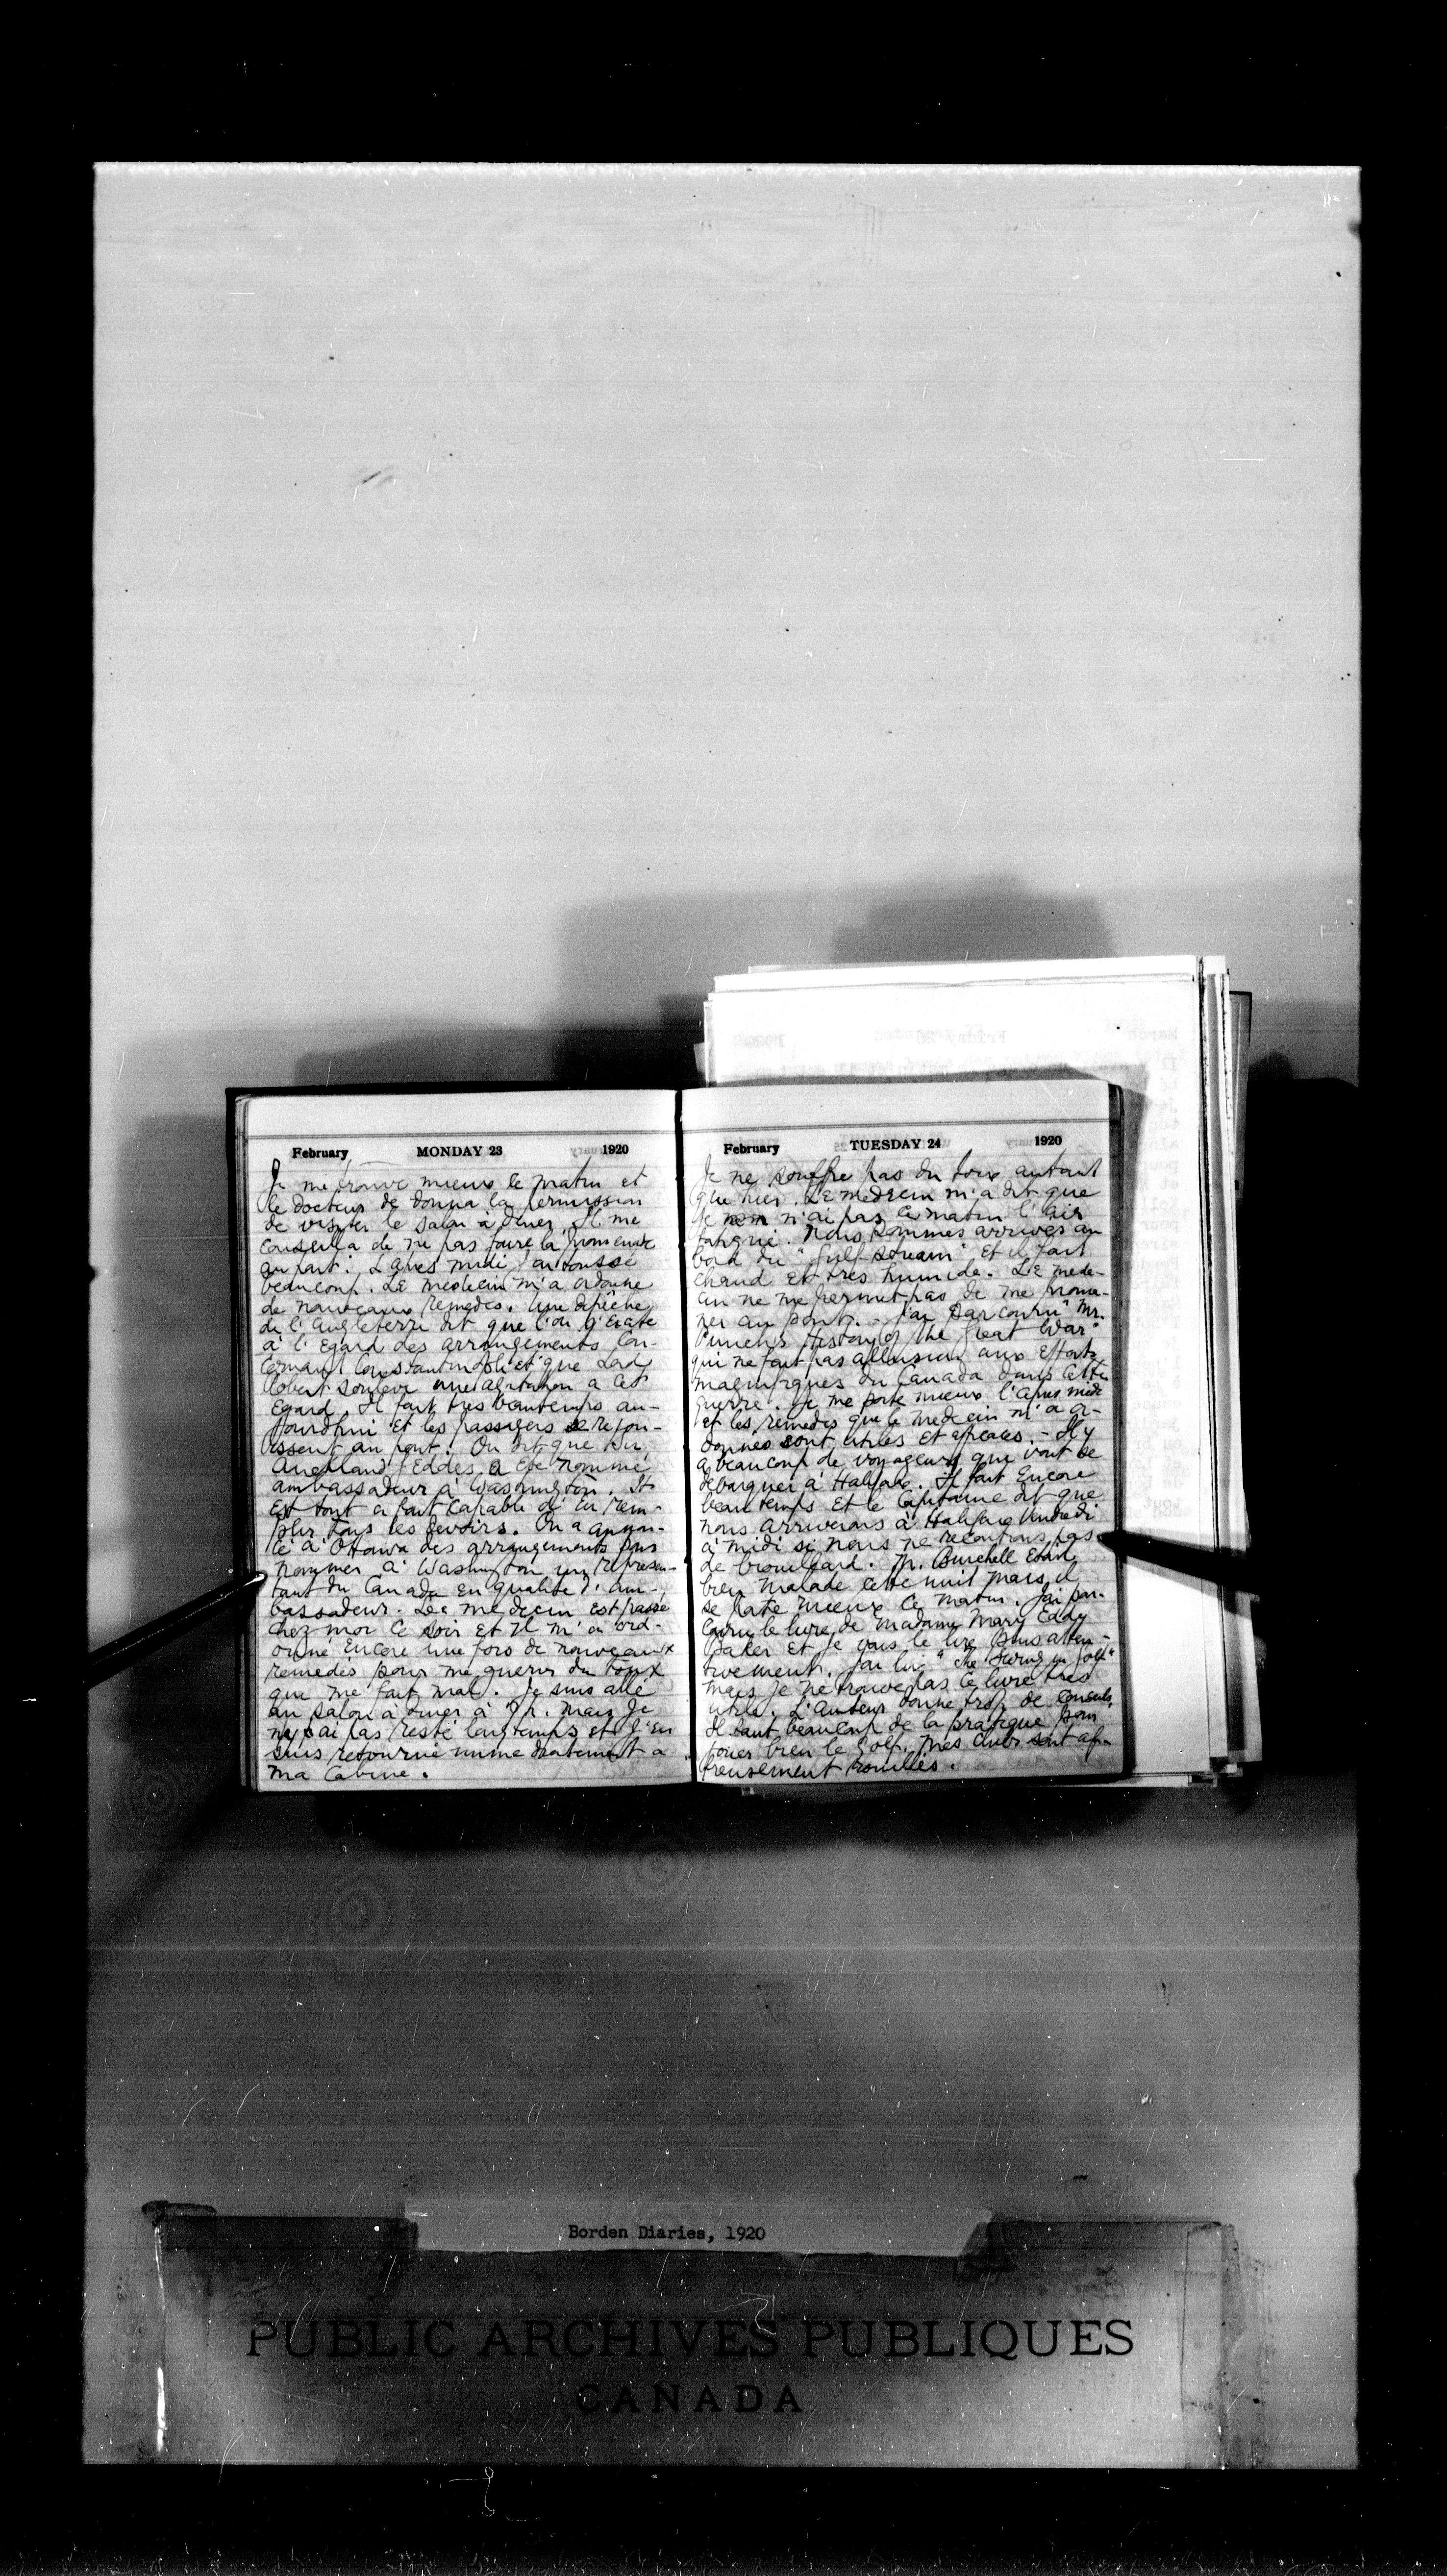 February MONDAY 23 1920
Je me trouve mieux le matin et
le docteur de donna la permission
de visiter le salon à diner. Il me
conseilla de ne pas faire la promenade
au pont. L'apres midi j'ai toussé
beaucoup. Le medecin m'a ordonné
de nouveaux remedes. Une depêche
de l'Angleterre dit que l'on
à l'egard des arrangements con-
cernant Constantinople et que Lord
Robert souleve une agitation a cet
egard. Il fait tres beau temps au-
jourdhui et les passagers se rejou-
issent au pont. On dit que Sir
Auckland Eddes a eté nommé
ambassadeur à Washington. Il
est tout a fait capable d'en rem-
plir tous les devoirs. On a annon-
cé à Ottawa des arrangements pour
nommer à Washington un represen-
tant du Canada en qualité d'am-
bassadeur. Le medecin est passé
chez moi ce soir et il m'a ord-
onné encore une fois de nouveaux
remedes pour me guerir du toux
que me fait mal. Je suis allé
au salon à diner à 7 h. mais je
n'y ai pas resté longtemps et j'en
suis retourné immediatement a
ma cabine.
February TUESDAY 24 1920
Je ne souffre pas du toux autant
que hier. Le medecin m'a dit que
je n'ai pas ce matin l'air
fatigué. Nous sommes arrivés au
bord du "Gulf-stream" et il fait
chaud et tres humide. Le mede-
cin ne me permet pas de me prome-
ner au pont. - J'ai parcouru "Mr.
Punch's History of the Great War"
qui ne fait pas allusion aux efforts
magnifiques du Canada dans cette
guerre. Je me porte mieux l'apres midi
et les remedes que le medecin m'a or-
donnés sont utiles et eficaces. - Il y
a beaucoup de voyageurs que vont se
debarquer à Halifax. Il fait encore
beau temps et le Capitaine dit que
nous arriverons à Halifax Vendredi
à midi si nous ne recontrons pas
de brouillard. Mr. Burchell etait
bien malade cette nuit mais il
se porte mieux ce matin. J'ai par-
couru le livre de Madame Mary Eddy
Baker et je vais le lire plus atten-
tivement. J'ai lu "The Swing in Golf"
mais je ne trouve pas ce livre tres
utile. L'auteur donne trop de conseils.
Il faut beaucoup de la pratique pour
jouer bien le Golf. Mes clubs sont af-
freusement rouillés.
Borden Diaries, 1920
PUBLIC ARCHIVES PUBLIQUES
CANADA